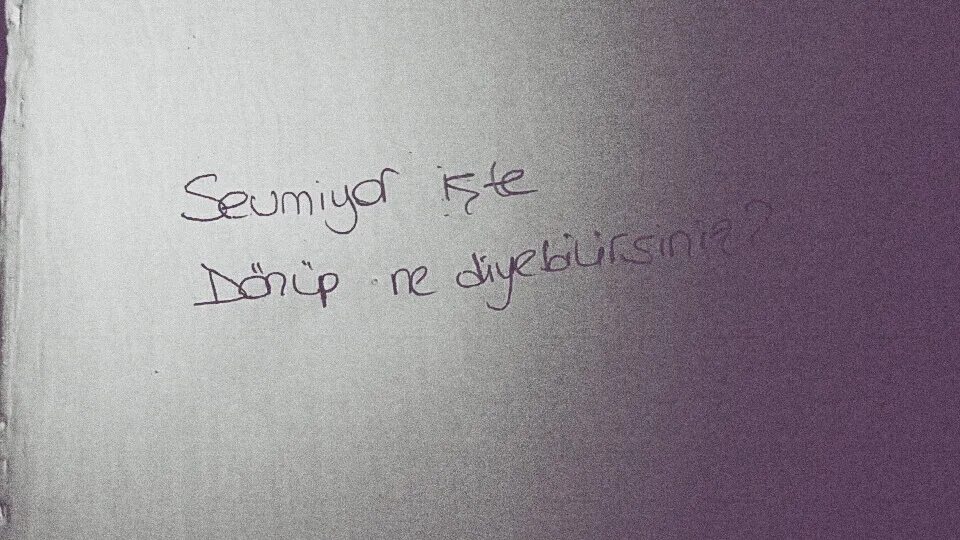 Sevmiyor işte
Dönüp ne diyebilirsiniz?